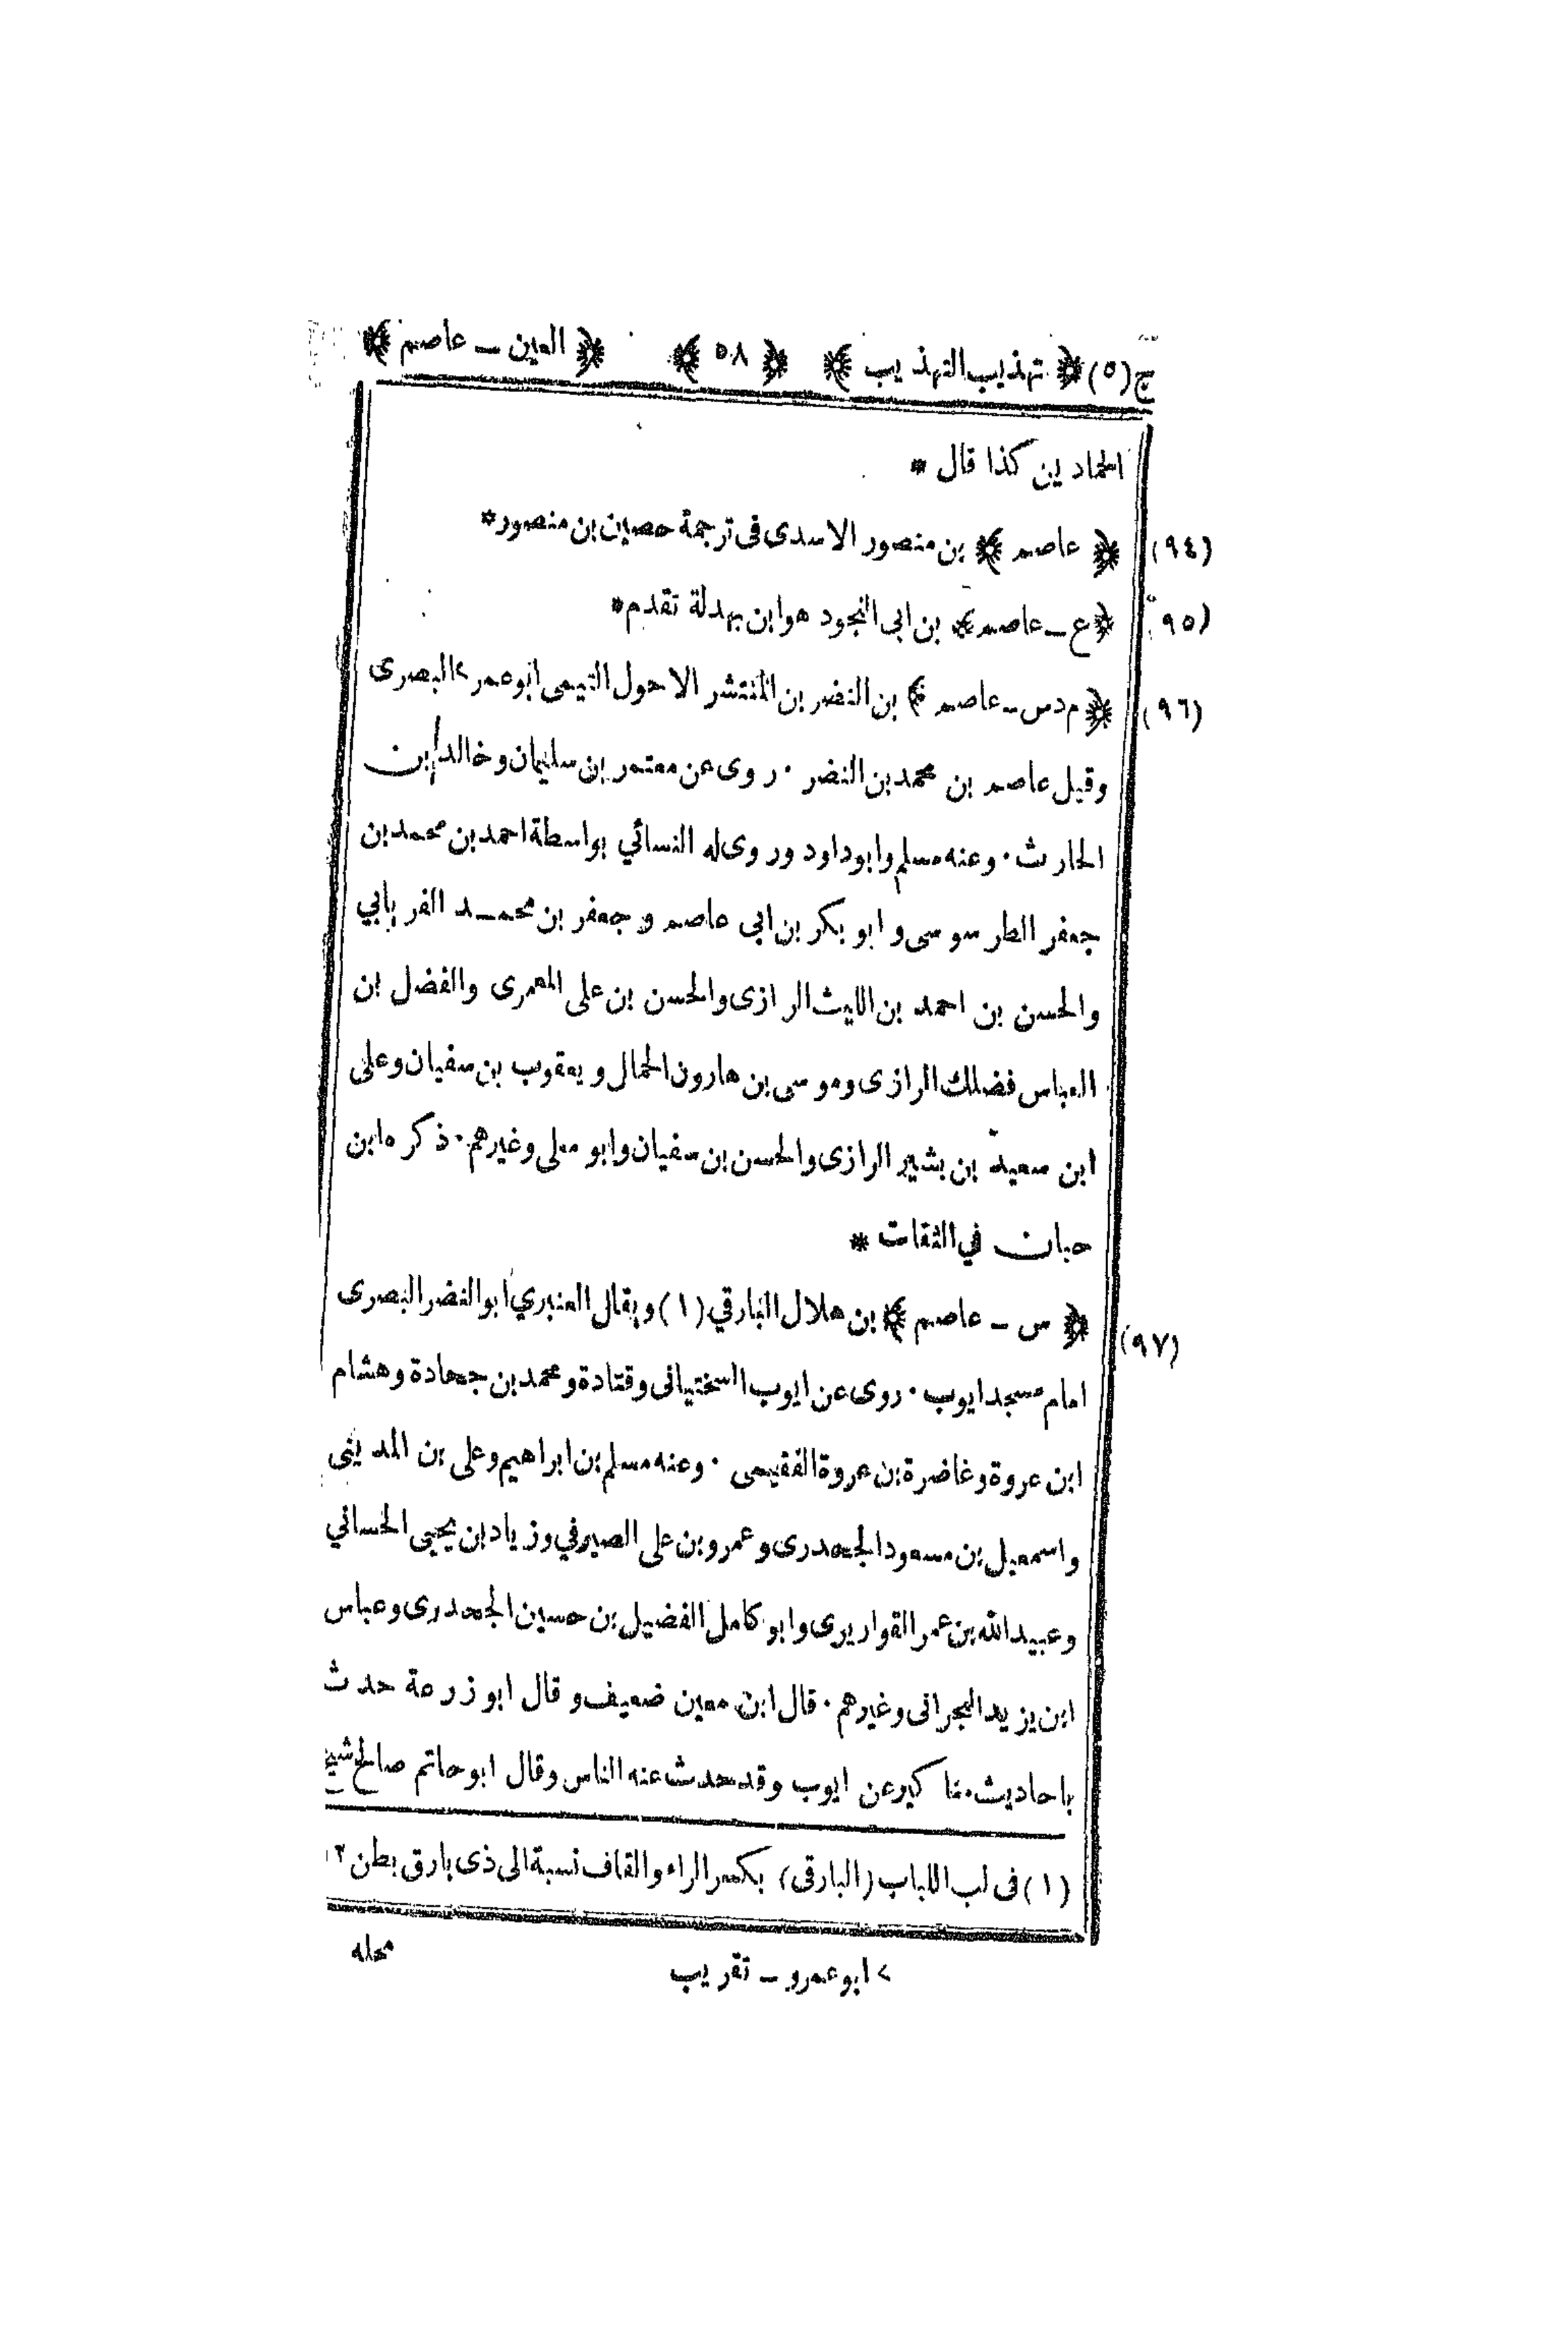 ج(٥) ﴿ تهذيب التهذيب ﴾ ﴿ ٥٨ ﴾ ﴿ العين ــ عاصم ﴾
الحمادين كذا قال *
(٩٤) ﴿ عاصم ﴾ بن منصور الاسدى فى ترجمة حصين بن منصور *
(٩٥) ﴿ ع ــ عاصم ﴾ بن ابى النجود هو ابن بهدلة تقدم *
(٩٦) ﴿ م د س ــ عاصم ﴾ بن النضر بن المنتشر الاحول التيمى ابو عمر > البصرى
وقيل عاصم بن محمد بن النضر ٠ روى عن معتمر بن سليمان و خالد ابن
الحارث ٠ وعنه مسلم وابو داود وروى له النسائي بواسطة احمد بن محمد بن
جعفر الطرسوسى و ابو بكر بن ابى عاصم و جعفر بن محمد الفريابي
والحسن بن احمد بن الليث الرازى والحسن بن على المعمرى والفضل بن
العباس فضلك الرازى وموسى بن هارون الحمال و يعقوب بن سفيان وعلى
ابن سعيد بن بشير الرازى والحسن بن سفيان وابو معلى وغيرهم ٠ ذكره ابن
حبان في الثقات *
(٩٧) ﴿ س ــ عاصم ﴾ بن هلال البارقي (١) ويقال العنبري ابو النضر البصرى
امام مسجد ايوب ٠ روى عن ايوب السختيانى وقتادة و محمد بن جحادة و هشام
ابن عروة وغاضرة بن عروة الفقيمى ٠ وعنه مسلم بن ابراهيم وعلى بن المدينى
واسمعيل بن مسعود الجحدرى و عمرو بن على الصيرفي و زياد بن يحيى الحساني
وعبيد الله بن عمر القواريرى وابو كامل الفضيل بن حسين الجحدرى وعباس
ابن يزيد البحرانى وغيرهم ٠ قال ابن معين ضعيف و قال ابو زرعة حدث
باحاديث مناكير عن ايوب وقد حدث عنه الناس وقال ابو حاتم صالح شيخ
(١) فى لب اللباب (البارقى) بكسر الراء والقاف نسبة الى ذى بارق بطن ١٢
> ابو عمرو ــ تقريب
محله